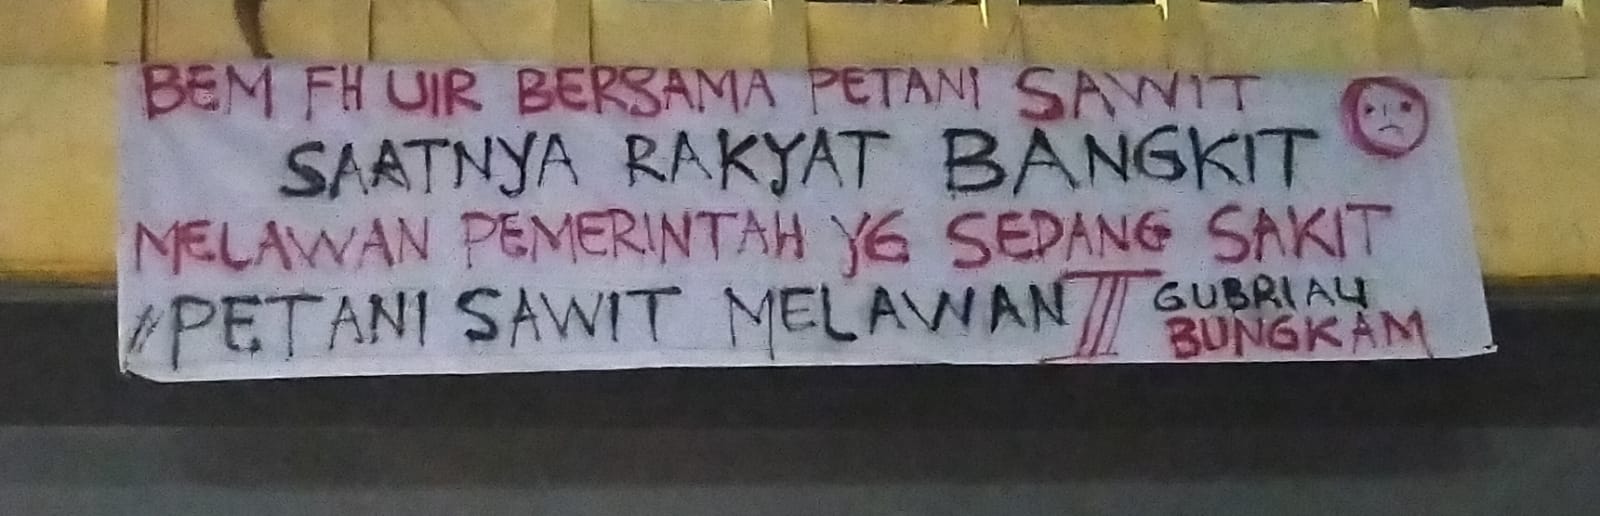 BEM FH UIR BERSAMA PETANI SAWIT
SAATNYA RAKYAT BANGKIT
MELAWAN PEMERINTAH YG SEDANG SAKIT
#PETANI SAWIT MELAWAN III
GUBRIAU
BUNGKAM